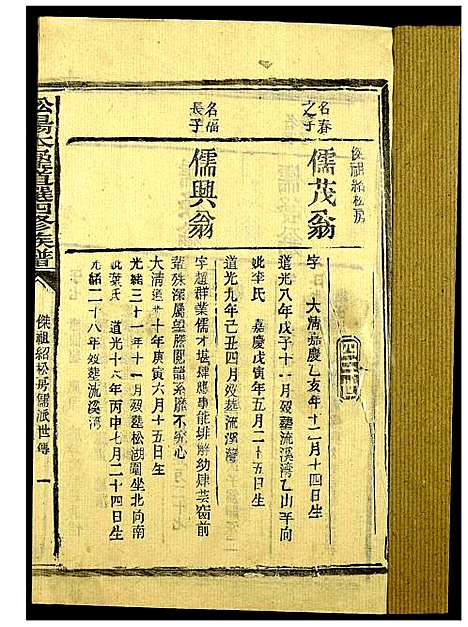 傑祖紹松房
名春之子
儒茂翁
字 大清嘉慶乙亥年十二月十四日生
道光八年戊子十一月歿塟流溪湾乙山羊向
妣李氏 嘉慶戊寅年五月二十五日生
道光九年己丑四月歿塟流溪湾
名福長子
儒興翁
字超群業儒才堪肆應事能排解幼肄芸窗前
輩殊深屬望
大清道光十年庚寅六月十五日生
光緒三十一年十一月歿塟松湖圍坐北向南
妣葉氏 道光十六年丙申七月二十四日生
光緒二十八年歿塟流溪湾
修族譜
傑祖紹松房儒派世傳 一